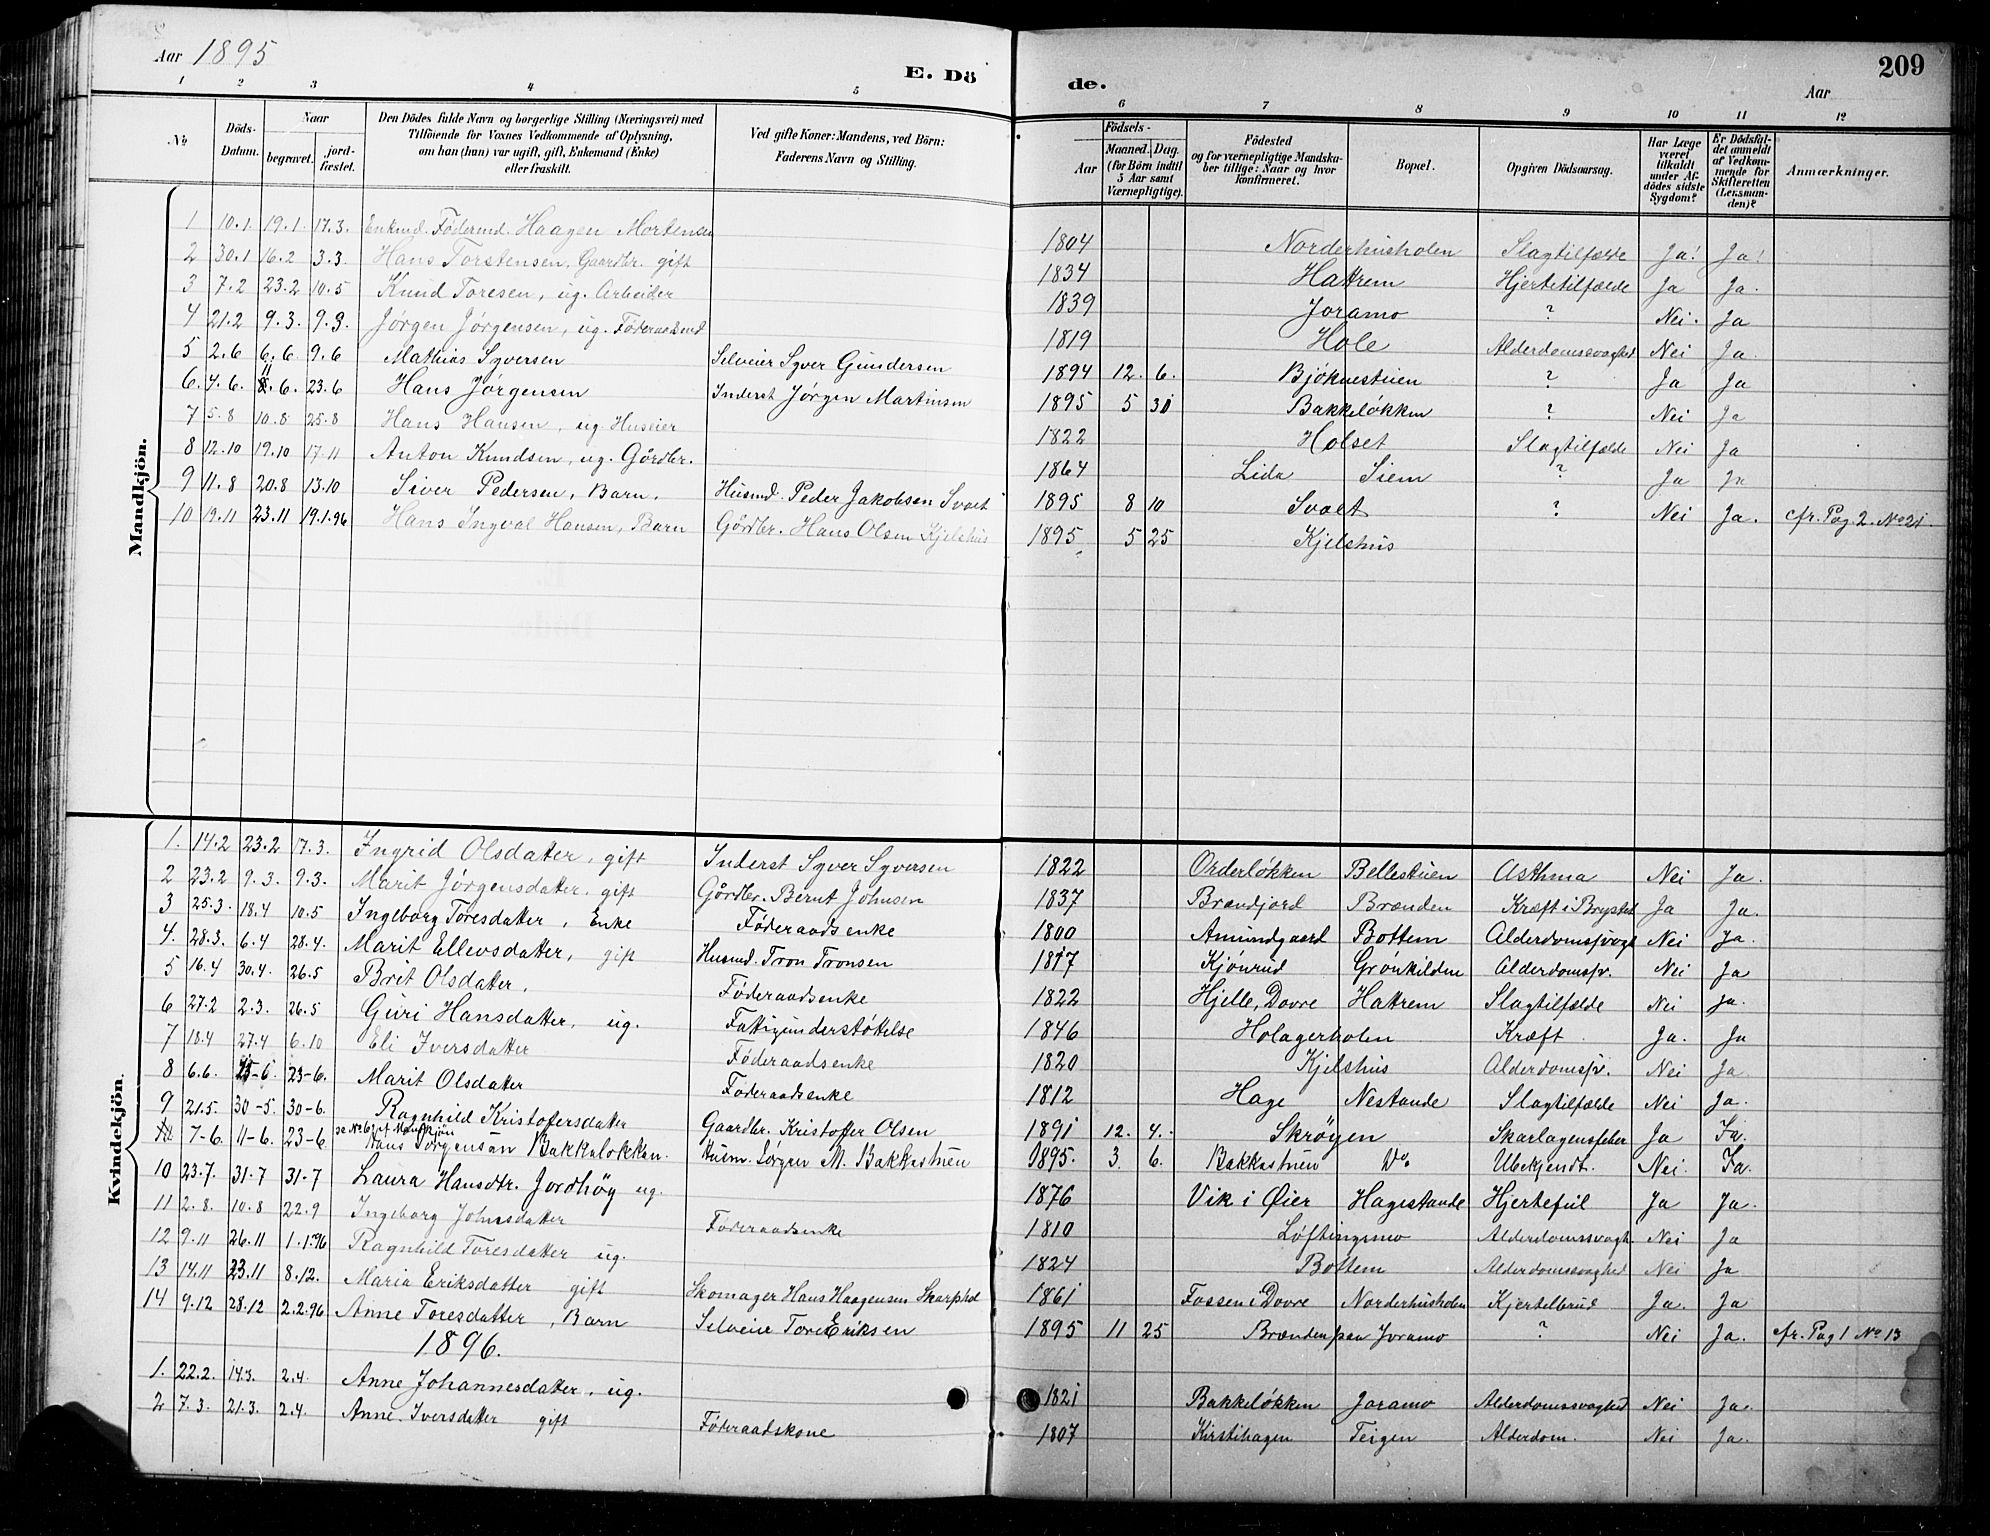 Aar 1895
E. Dö de.
209
Aar
1 2 3 4 5 6 7 8 9 10 11 12
No
Döds-Datum.
Naar
begravet.
jord-fæstet.
Den Dödes fulde Navn og borgerlige Stilling (Næringsvei) med Tilföiende for Voxnes Vedkommende af Oplysning, om han (hun) var ugift, gift, Enkemand (Enke) eller fraskilt.
Ved gifte Koner: Mandens, ved Börn: Faderens Navn og Stilling.
Födsels-
Aar
Maaned. Dag. (for Börn indtil 5 Aar samt Værnepligtige).
Födested og for værnepligtige Mandskaber tillige: Naar og hvor konfirmeret.
Bopæl.
Opgiven Dödsaarsag.
Har Læge været tilkaldt under Afdödes sidste Sygdom?
Er Dödsfaldet anmeldt af Vedkommende for Skifteretten (Lensmanden)?
Anmærkninger.
Mandkjön.
1 10.1 19.1 17.3. Enkmd. Födermd. Haagen Mortensen 1804 Norderhusholen Slagtilfælde Ja! Ja!
2 30.1 16.2 3.3. Hans Torstensen, Gaardbr. gift 1834 Hattrem Hjertetilfælde Ja Ja.
3 7.2 23.2 10.5 Knud Toresen, ug. Arbeider 1839 Joramo ? Nei. Ja
4 21.2 9.3. 9.3. Jørgen Jørgensen, ug. Föderaadsmd 1819 Hole Alderdomssvaghed Nei Ja.
5 2.6 6.6. 9.6 Mathias Syversen Selveier Syver Gundersen 1894 12. 6. Bjöknestuen ? Ja Ja
6. 4.6. 11.6. 23.6 Hans Jørgensen Inderst Jørgen Martinsen 1895 5 30 Bakkeløkken ? Nei Ja
7 5.8 10.8 25.8 Hans Hansen, ug. Huseier 1822 Holset Slagtilfælde Nei Ja
8 12.10 19.10 17.11 Anton Knudsen, ug. Gårdbr. 1864 Lida Siem ? Ja Ja
9 11.8 20.8 13.10 Siver Pedersen, Barn. Husmd. Peder Jakobsen Svaet 1895 8 10 Svaet ? Nei Ja. cfr. Pag. 2. No 21.
10 19.11 23.11 19.1.96 Hans Ingval Hansen, Barn Gårdbr. Hans Olsen Kjelshus 1895 5 25 Kjelshus
Kvindekjön.
1. 14.2 23.2 17.3. Ingrid Olsdatter, gift Inderst Syver Syversen 1822 Orderløkken Bellestuen Asthma Nei Ja.
2 23.2 9.3. 9.3. Marit Jørgensdatter, gift Gårdbr. Bernt Johnsen 1837 Brændjord Brænden Kræft i Brystet Ja Ja.
3 25.3. 18.4 10.5 Ingeborg Toresdatter, Enke Föderaadsenke 1800 Amundgaard Bottem Alderdomssvagh. Nei Ja.
4. 28.3. 6.4 28.4. Marit Ellevsdatter, gift Husmd. Tron Tronsen 1817 Kjönrud Grönkilden Alderdomssv. Nei Ja
5 16.4 30.4. 26.5 Brit Olsdatter, Föderaadsenke 1822 Hjelle, Dovre Hattrem Slagtilfælde Nei Ja.
6 27.2 2.3. 26.5 Guri Hansdatter, ug. Fattigunderstøttelse 1846 Holagerholen Kræft Ja. Ja
7 18.4 27.4 6.10 Eli Iversdatter Föderaadsenke 1820 Kjelshus Alderdomssv. Nei Ja.
8 6.6. 23-6. Marit Olsdatter Föderaadsenke 1812 Hage Nestande Slagtilfælde Nei Ja.
9 21.5. 30-5. 30-6. Ragnhild Kristofersdatter Gaardbr. Kristoffer Olsen 1891 12. 4. Skrøyen Skarlagensfeber Ja Ja.
7-6. 11-6. 23-6 se No 6 af Mandkjön Hans Jørgensøn Bakkeløkken. Husm. Jørgen M. Bakkestuen 1895. 3. 6. Bakkestuen Do. Ubekjendt. Nei. Ja.
10 23.7. 31.7 31.7 Laura Hansdtr. Jordhöy ug. 1876 Vik i Øier Hagestande Hjertefeil Ja Ja.
11 2.8. 10.8 22.9 Ingeborg Johnsdatter Föderaadsenke 1810 Løftingsmo Alderdomssvagh. Nei Ja
12 9.11 26.11 1.1.96 Ragnhild Toresdatter ug. 1824 Bottem Alderdomssvaghed Nei Ja
13 14.11 23.11 8.12. Maria Eriksdatter gift Skomager Hans Haagensen Skarphol 1861 Fossen i Dovre Norderhusholen Kjertelbrud Ja. Ja
14 9.12 28.12 2.2.96 Anne Toresdatter, Barn Selveier Tore Eriksen 1895 11 25 Brænden paa Joramo ? Nei Ja. cfr. Pag 1 No 13
1896.
1. 22.2. 14.3. 2.4. Anne Johannesdatter, ug. 1821 Bakkeløkken Joramo Alderdomssvaghed Nei Ja.
2 7.3. 21.3. 2.4. Anne Iversdatter gift Föderaadskone 1807 Kirstihagen Teigen Alderdom. Nei Ja.